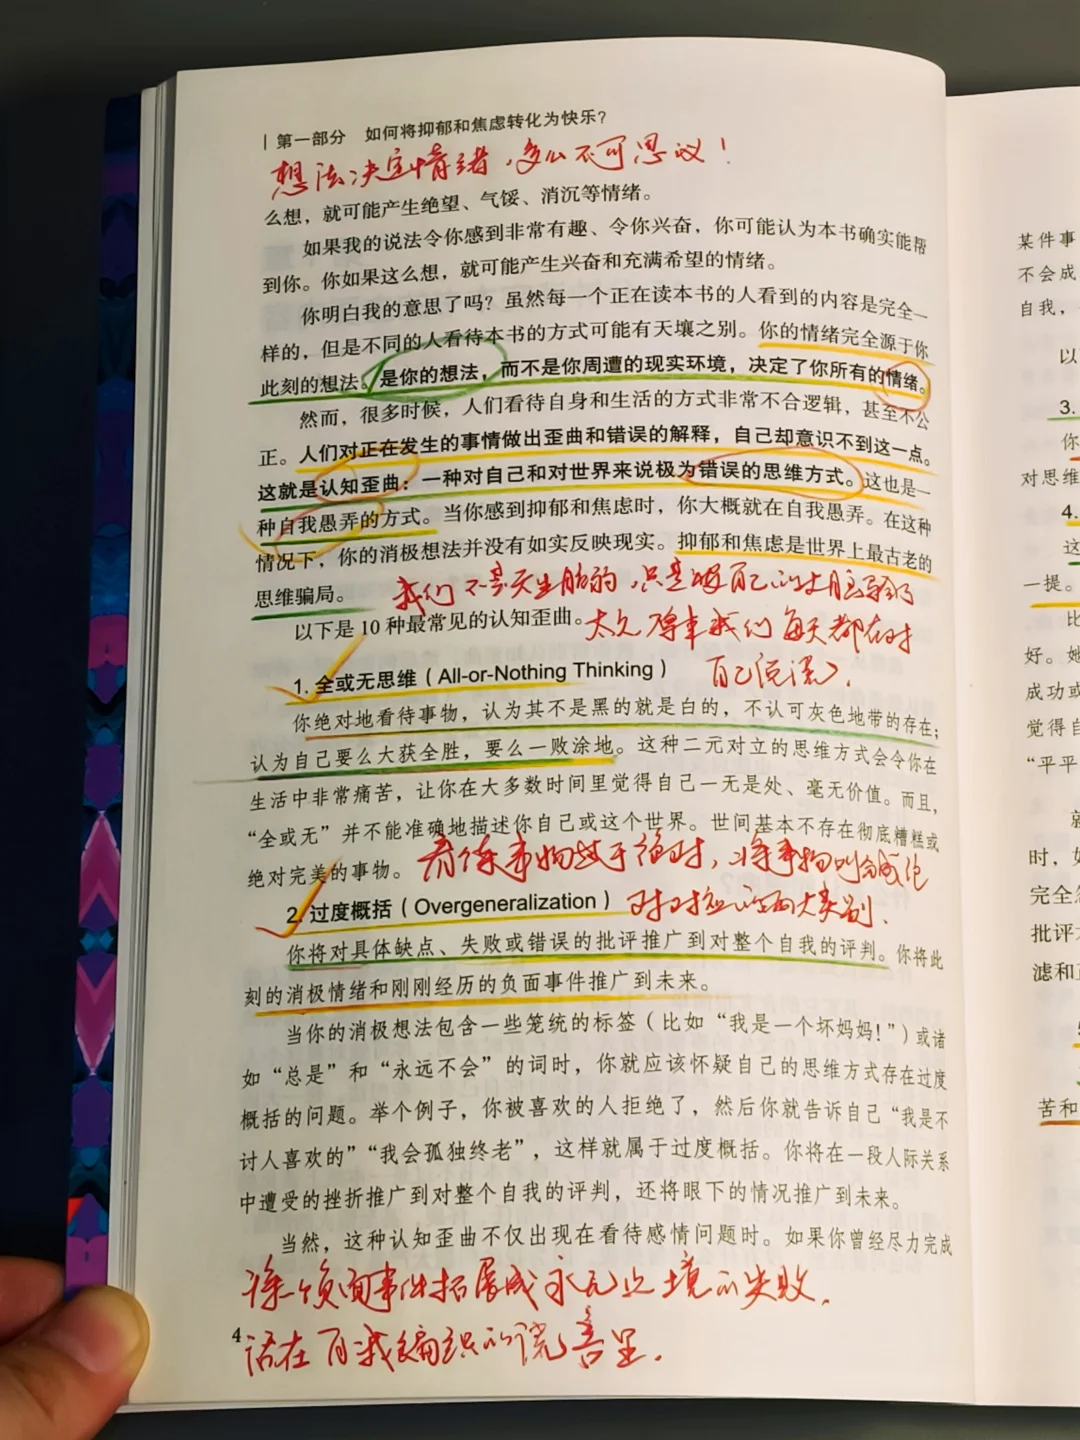 第一部分 如何将抑郁和焦虑转化为快乐?
想法决定情绪，多么不可思议！
么想，就可能产生绝望、气馁、消沉等情绪。
如果我的说法令你感到非常有趣、令你兴奋，你可能认为本书确实能帮
到你。你如果这么想，就可能产生兴奋和充满希望的情绪。
你明白我的意思了吗？虽然每一个正在读本书的人看到的内容是完全一
样的，但是不同的人看待本书的方式可能有天壤之别。你的情绪完全源于你
此刻的想法。是你的想法，而不是你周遭的现实环境，决定了你所有的情绪。
然而，很多时候，人们看待自身和生活的方式非常不合逻辑，甚至不公
正。人们对正在发生的事情做出歪曲和错误的解释，自己却意识不到这一点。
这就是认知歪曲：一种对自己和对世界来说极为错误的思维方式。这也是一
种自我愚弄的方式。当你感到抑郁和焦虑时，你大概就在自我愚弄。在这种
情况下，你的消极想法并没有如实反映现实。抑郁和焦虑是世界上最古老的
思维骗局。
我们不是天生脆弱，只是被自己的大脑
以下是 10 种最常见的认知歪曲。
我们每天都在对
自己说谎
1. 全或无思维（All-or-Nothing Thinking）
你绝对地看待事物，认为其不是黑的就是白的，不认可灰色地带的存在；
认为自己要么大获全胜，要么一败涂地。这种二元对立的思维方式会令你在
生活中非常痛苦，让你在大多数时间里觉得自己一无是处、毫无价值。而且，
“全或无”并不能准确地描述你自己或这个世界。世间基本不存在彻底糟糕或
绝对完美的事物。
看待事物过于绝对，将事物
2. 过度概括（Overgeneralization）
对应的两大类别.
你将对具体缺点、失败或错误的批评推广到对整个自我的评判。你将此
刻的消极情绪和刚刚经历的负面事件推广到未来。
当你的消极想法包含一些笼统的标签（比如“我是一个坏妈妈！”）或诸
如“总是”和“永远不会”的词时，你就应该怀疑自己的思维方式存在过度
概括的问题。举个例子，你被喜欢的人拒绝了，然后你就告诉自己“我是不
讨人喜欢的”“我会孤独终老”，这样就属于过度概括。你将在一段人际关系
中遭受的挫折推广到对整个自我的评判，还将眼下的情况推广到未来。
当然，这种认知歪曲不仅出现在看待感情问题时。如果你曾经尽力完成
负面事件拓展成永无止境的失败.
4
活在自我编织的谎言里.
某件事
不会成
自我，
以
3.
你
对思维
4.
这
一提。
比
好。她
成功或
觉得自
“平平
就
时，如
完全忽
批评
滤和
苦和